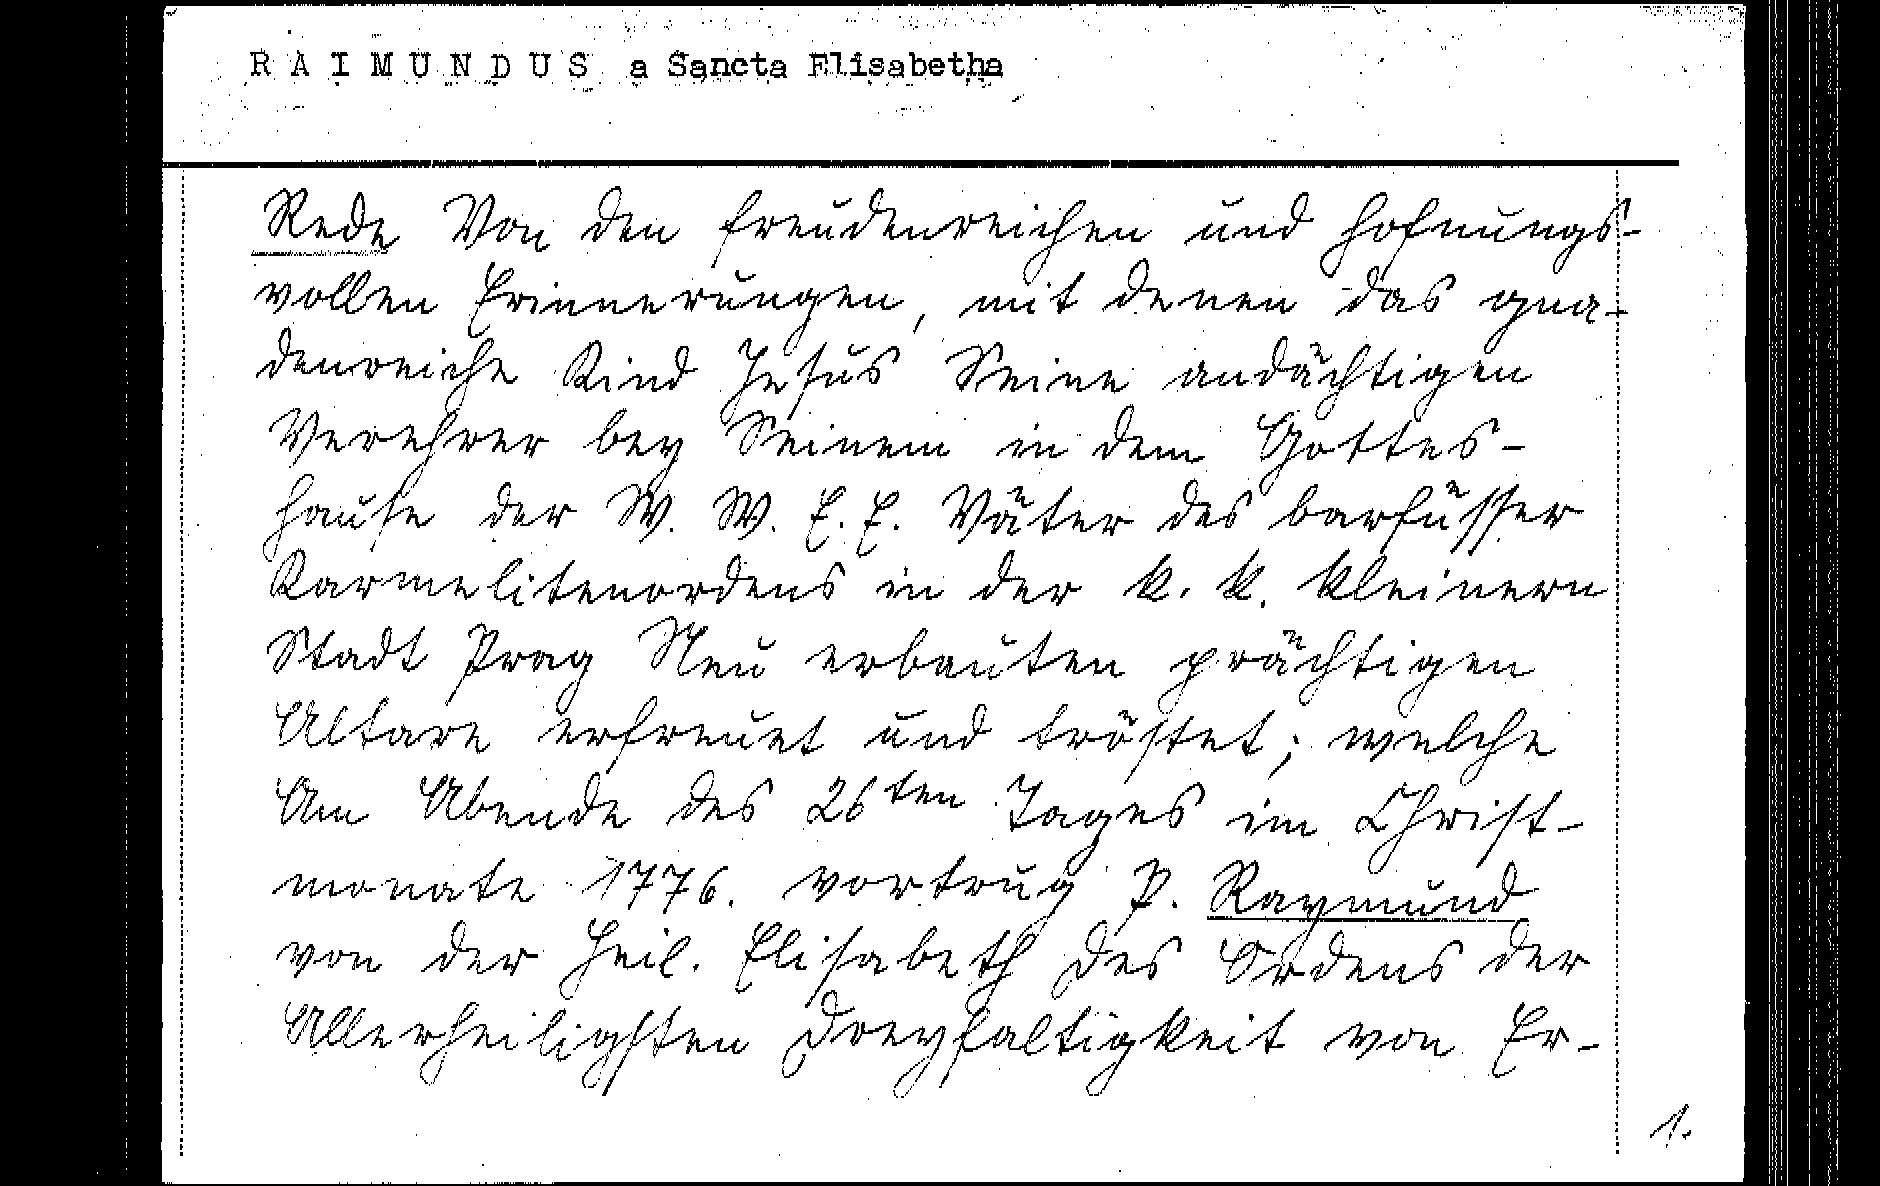 RAIMUNDUS a Sancta Elisabetha
Rede Von den freudenreichen und hofnungs-
vollen Erinnerungen, mit denen das gna-
denreiche Kind Jesus Seine andächtigen
Verehrer bey Seinem in dem Gottes-
hause der W. W. E. E. Väter des barfüsser
Karmelitenordens in der k. k. kleinern
Stadt Prag Neu erbauten prächtigen
Altare erfreuet und tröstet; welche
Am Abende des 26ten Tages im Christ-
monate 1776. vortrug P. Raymund
von der Heil. Elisabeth des Ordens der
Allerheiligsten Dreyfaltigkeit von Er-
1.